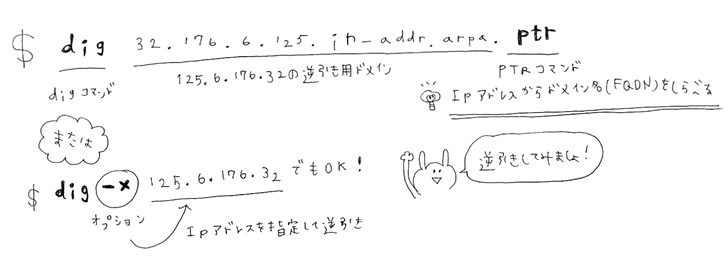 $ dig 32.176.6.125.in-addr.arpa. ptr
digコマンド
125.6.176.32の逆引き用ドメイン
PTRコマンド
IPアドレスからドメイン名(FQDN)をしらべる
または
$ dig -x 125.6.176.32 でもOK!
オプション
IPアドレスを指定して逆引き
逆引きしてみましょ!